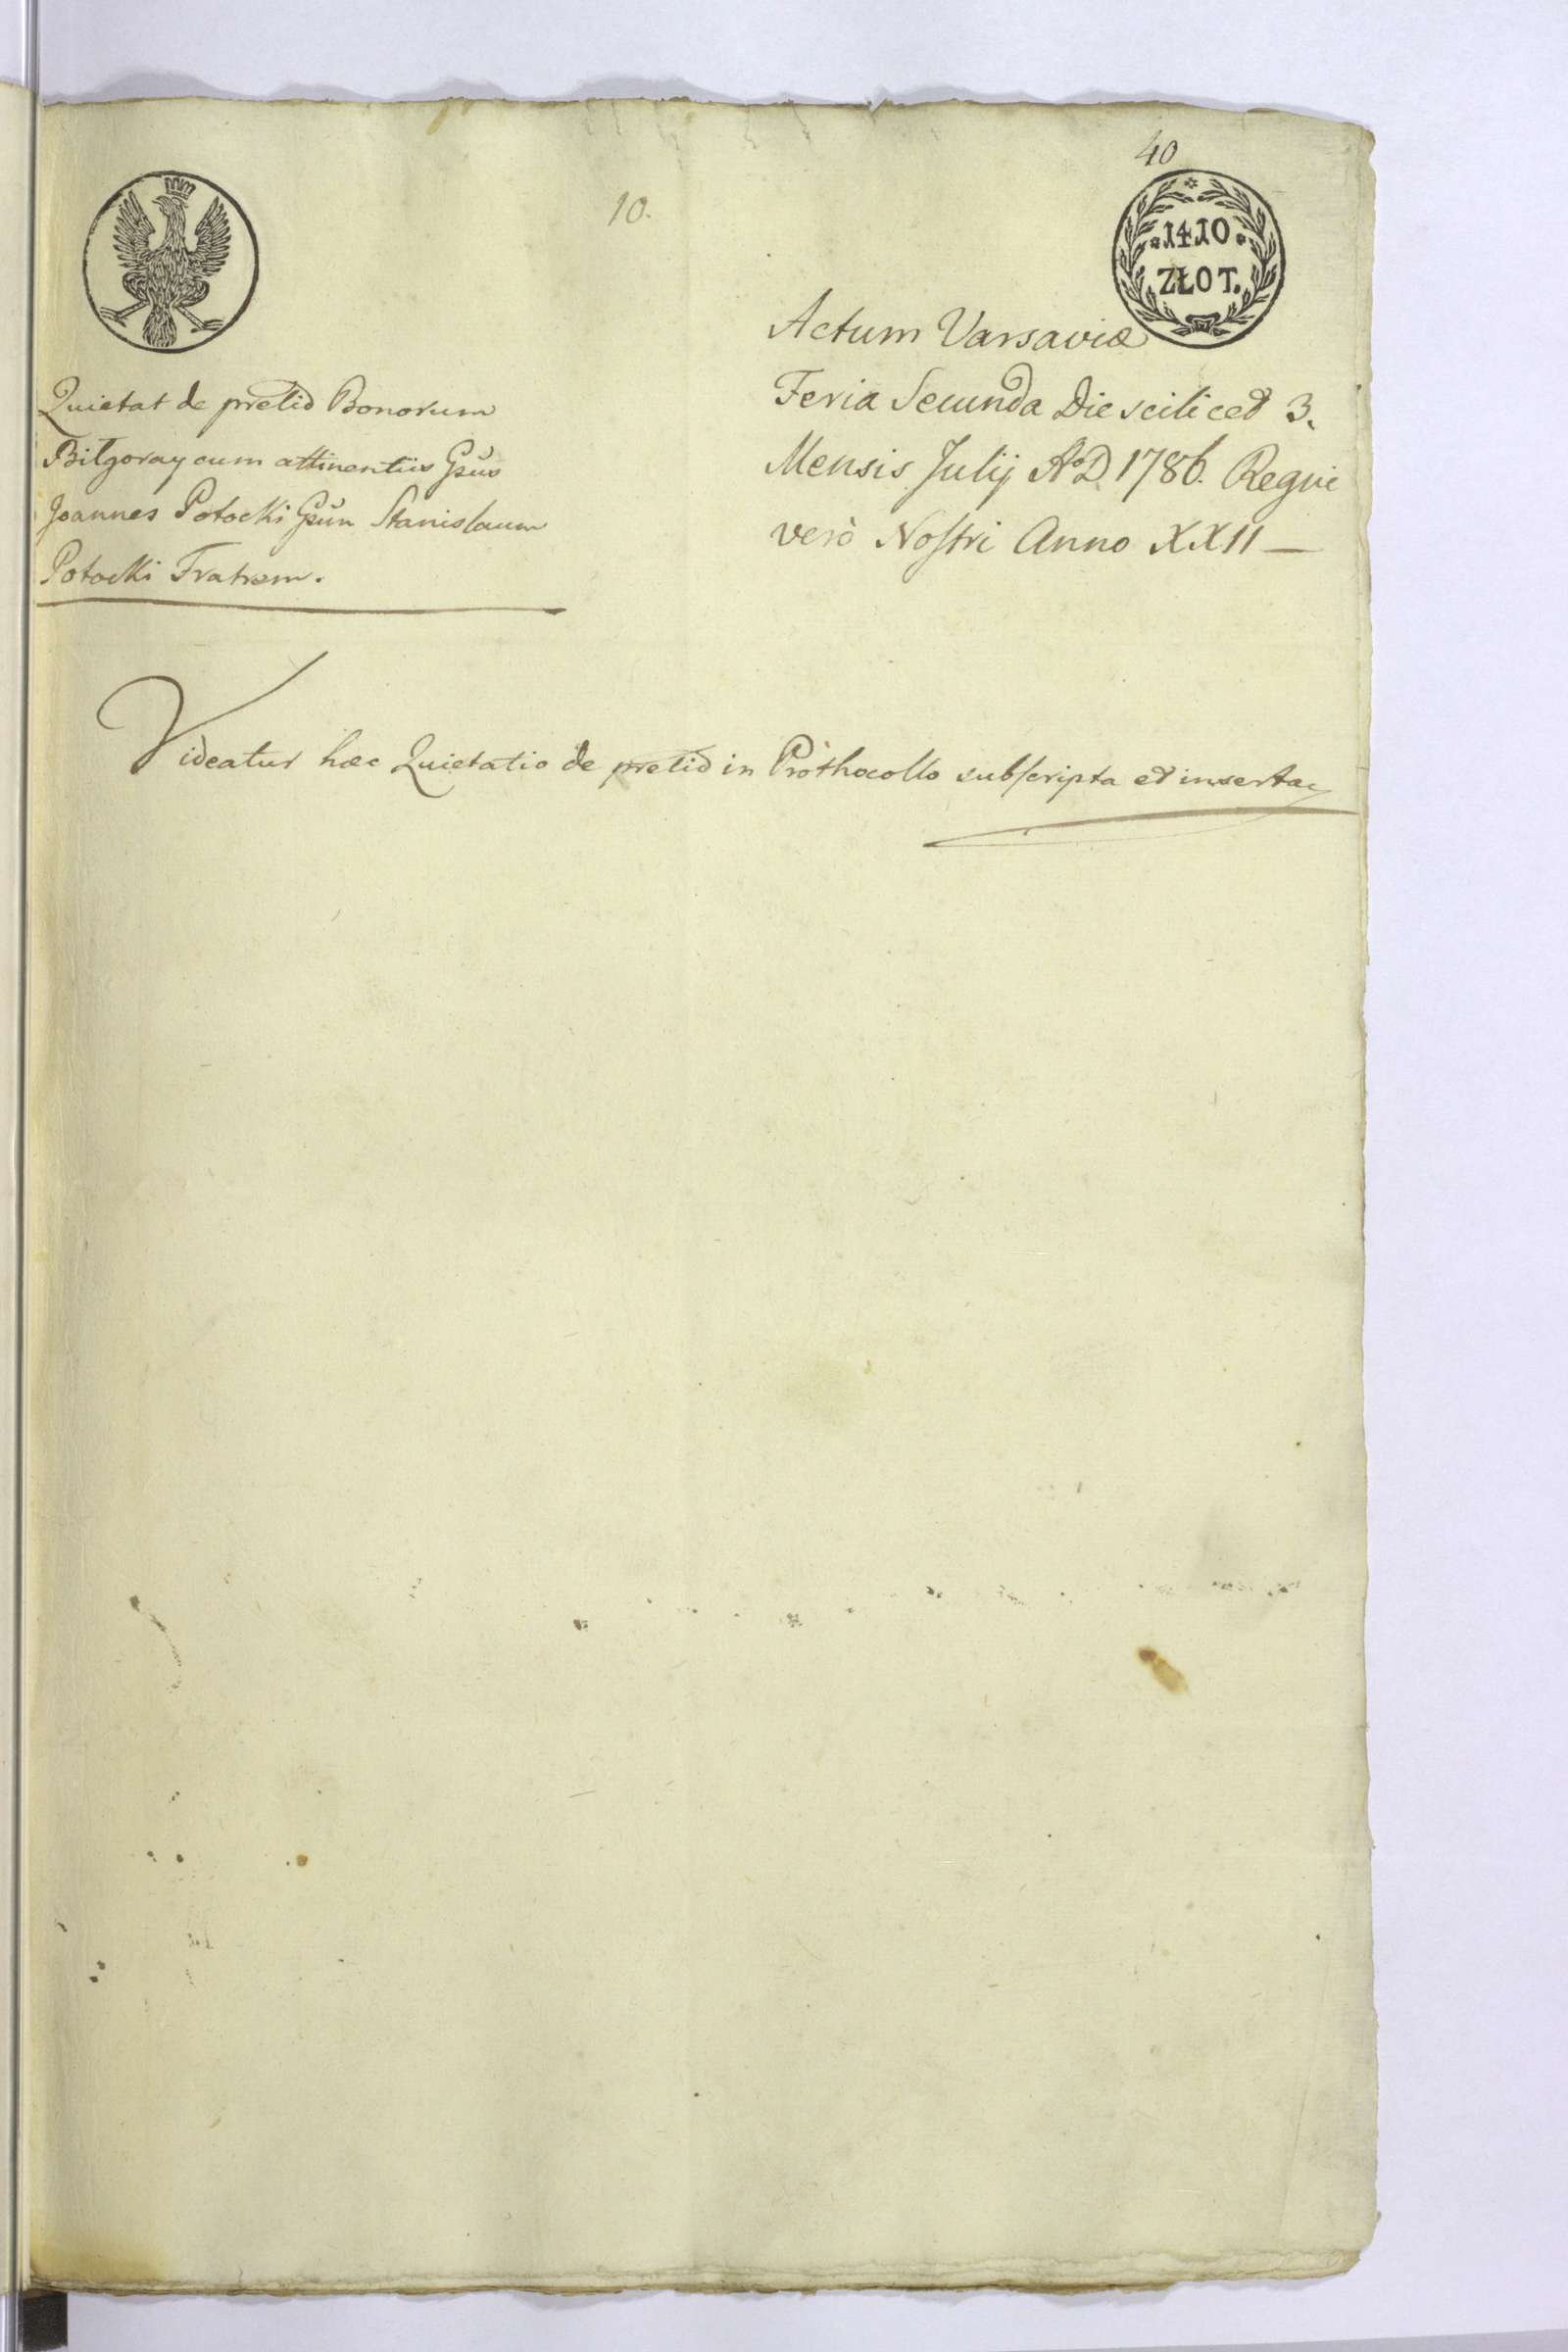 40
10.
1410
ZŁOT.
Actum Varsaviæ
Feria Secunda Die scilicet 3.
Mensis Julij A°D 1786. Regni
verò Nostri Anno XXII —
Quietat de pretio Bonorum
Biłgoray cum attinentiis Gsũs
Joannes Potocki Gsũn Stanislaum
Potocki Fratrem.
Videatur hæc Quietatio de pretio in Prothocollo subscripta et inserta